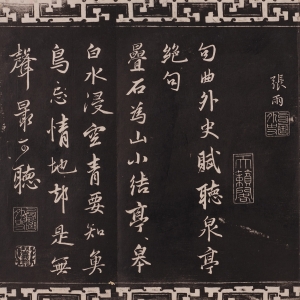 張雨
句曲外史賦聽泉亭
絕句
天籟閣
疊石為山小結亭
白水浸空青要知魚
鳥忘情地却是無
聲最可聽